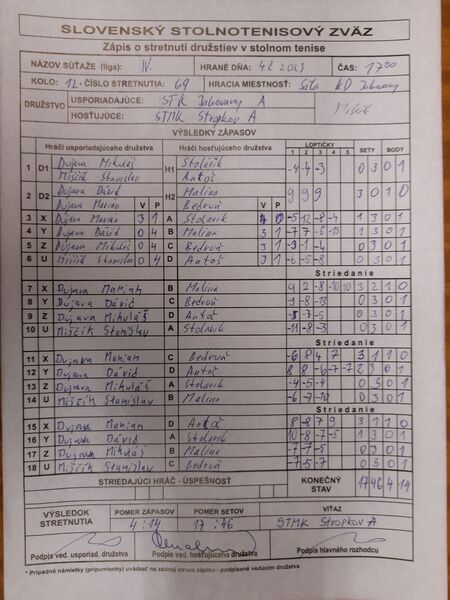 SLOVENSKÝ STOLNOTENISOVÝ ZVÄZ
Zápis o stretnutí družstiev v stolnom tenise
NÁZOV SÚŤAŽE (liga): IV. HRANÉ DŇA: ČAS: 17 00
KOLO: 12. ČÍSLO STRETNUTIA: 69 HRACIA MIESTNOSŤ: Sála KD
DRUŽSTVO
USPORIADAJÚCE: STK A
HOSŤUJÚCE: STMK Stropkov A
VÝSLEDKY ZÁPASOV
Hráči usporiadajúceho družstva Hráči hosťujúceho družstva LOPTIČKY SETY BODY
1 2 3 4 5
1 D1 Dujava Mikuláš H1 Stolárik -4 -4 -3 0 3 0 1
Miščík Stanislav Antoš
2 D2 Dujava Dávid H2 Malina 9 9 9 3 0 1 0
Dujava Marian V P Bedruň V P
3 X Dujava Marian 3 1 A Stolárik -5 -12 -8 -4 1 3 0 1
4 Y Dujava Dávid 0 4 B Malina 3 1 -7 -8 -13 0 3 0 1
5 Z Dujava Mikuláš 0 4 C Bedruň 3 1 -3 -1 -4 0 3 0 1
6 U Miščík Stanislav 0 4 D Antoš 3 1 -6 -5 -8 0 3 0 1
Striedanie
7 X Dujava Marian B Malina 9 2 -8 -10 10 3 2 1 0
8 Y Dujava Dávid C Bedruň -9 -8 -13 0 3 0 1
9 Z Dujava Mikuláš D Antoš -5 0 3 0 1
10 U Miščík Stanislav A Stolárik -11 -8 -3 0 3 0 1
Striedanie
11 X Dujava Marian C Bedruň -6 8 4 7 3 1 1 0
12 Y Dujava Dávid D Antoš 8 8 -6 -7 -7 2 3 0 1
13 Z Dujava Mikuláš A Stolárik -4 -5 -4 0 3 0 1
14 U Miščík Stanislav B Malina -6 -7 -10 0 3 0 1
Striedanie
15 X Dujava Marian D Antoš 8 -8 7 9 3 1 1 0
16 Y Dujava Dávid A Stolárik 10 -8 -7 -5 1 3 0 1
17 Z Dujava Mikuláš B Malina -7 -7 -5 0 3 0 1
18 U Miščík Stanislav C Bedruň -7 -5 -7 0 3 0 1
STRIEDAJÚCI HRÁČ - ÚSPEŠNOSŤ KONEČNÝ STAV 17 46 4 14
VÝSLEDOK STRETNUTIA POMER ZÁPASOV POMER SETOV VÍŤAZ
4 : 14 17 : 46 STMK Stropkov A
Podpis ved. usporiad. družstva Podpis ved. hosťujúceho družstva Podpis hlavného rozhodcu
* Prípadné námietky (pripomienky) uvádzať na zadnej strane zápisu - podpísané vedúcim družstva